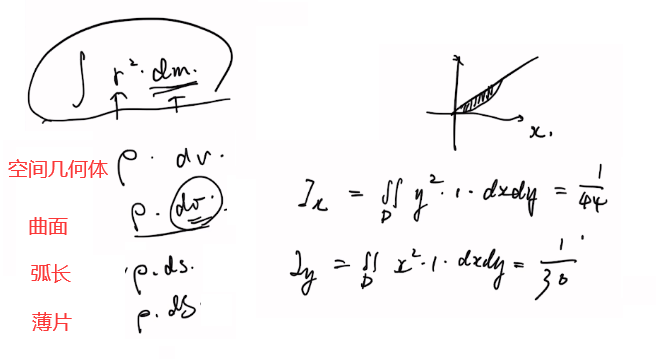 ∫ r²· dm.
空间几何体 ρ · dv.
曲面 ρ · dσ.
弧长 ρ·ds.
薄片 ρ·dS.
x.
I_x = ∬_D y²·1·dxdy = 1/44
I_y = ∬_D x²·1·dxdy = 1/30